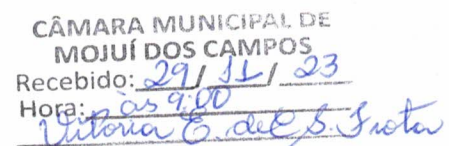 CÂMARA MUNICIPAL DE
MOJUÍ DOS CAMPOS
Recebido: 29 / 11 / 23
Hora: às 9:00
Vitoria E. de S. Frota